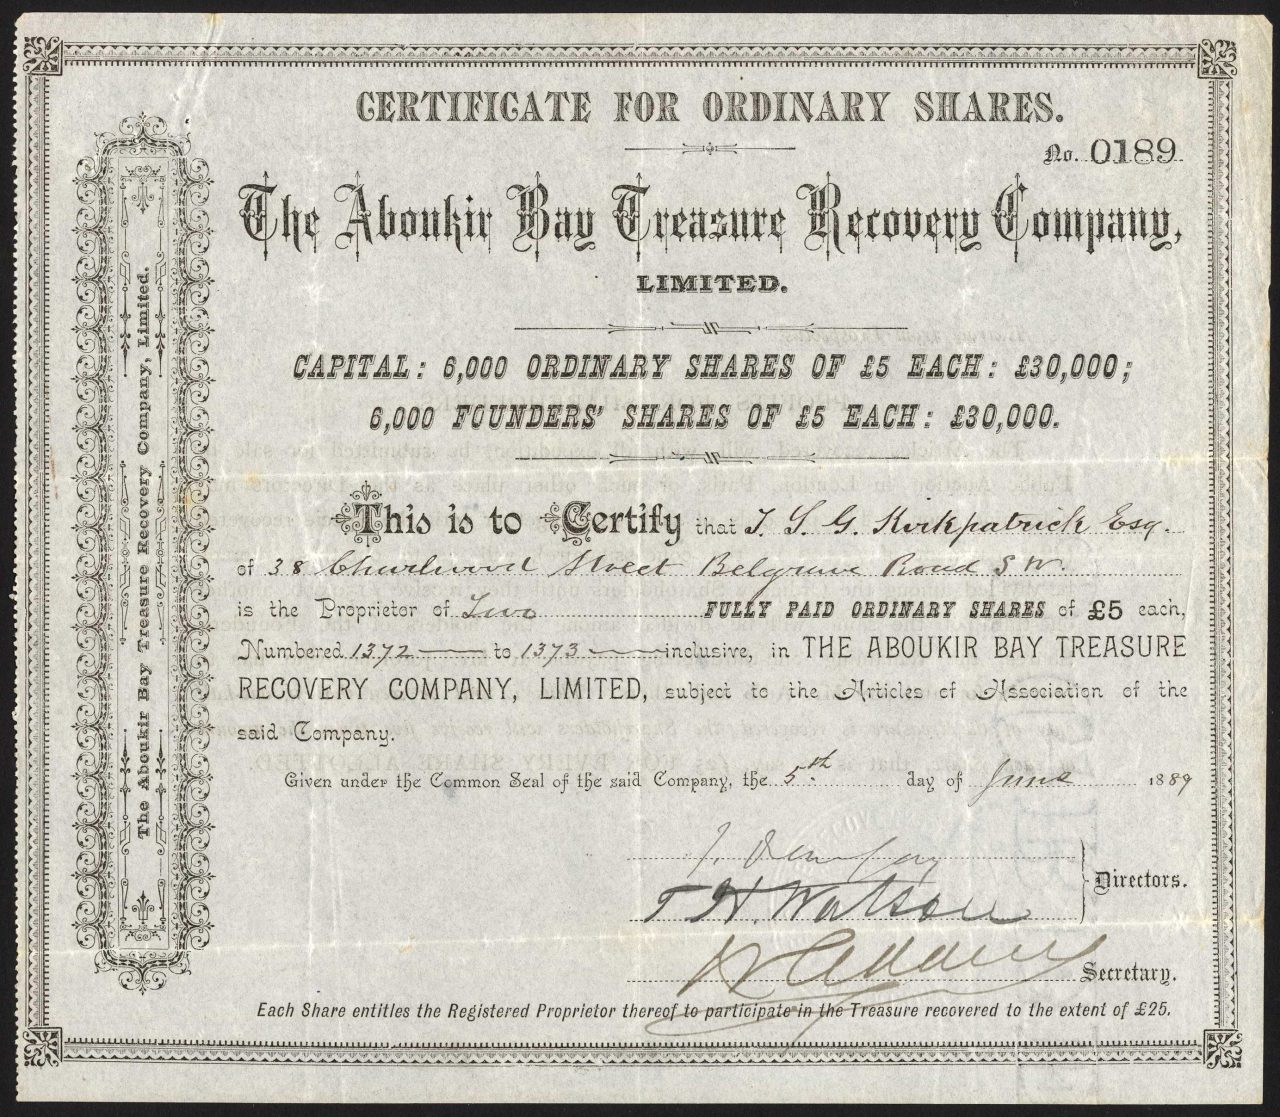 CERTIFICATE FOR ORDINARY SHARES.
No. 0189
The Aboukir Bay Treasure Recovery Company,
LIMITED.
CAPITAL: 6,000 ORDINARY SHARES OF £5 EACH: £30,000;
6,000 FOUNDERS' SHARES OF £5 EACH: £30,000.
This is to Certify that T. S. G. Kirkpatrick Esq.
of 38 Churlwood Street Belgrave Road S.W.
is the Proprietor of Two FULLY PAID ORDINARY SHARES of £5 each,
Numbered 1372 to 1373 inclusive, in THE ABOUKIR BAY TREASURE
RECOVERY COMPANY, LIMITED, subject to the Articles of Association of the
said Company.
Given under the Common Seal of the said Company, the 5th day of June 1889
T H. Watson
Directors.
Secretary.
Each Share entitles the Registered Proprietor thereof to participate in the Treasure recovered to the extent of £25.
The Aboukir Bay Treasure Recovery Company, Limited.